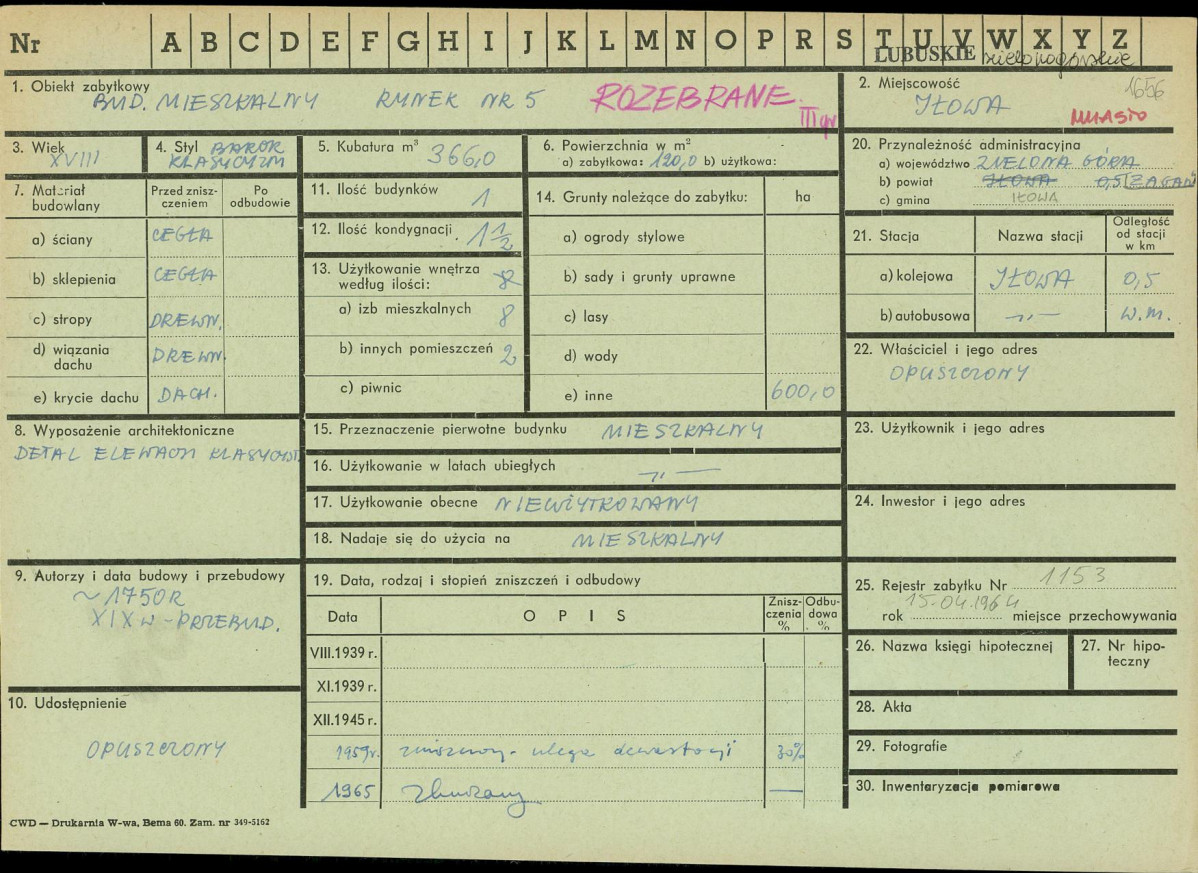 Nr A B C D E F G H I J K L M N O P R S T U V W X Y Z
LUBUSKIE zielonogórskie
1. Obiekt zabytkowy
BUD. MIESZKALNY RYNEK NR 5 ROZEBRANE
III gr
2. Miejscowość 1656
IŁOWA
MIASTO
3. Wiek
XVIII
4. Styl BAROK
KLASYCYZM
5. Kubatura m³ 366,0
6. Powierzchnia w m²
a) zabytkowa: 120,0 b) użytkowa:
20. Przynależność administracyjna
a) województwo ZIELONA GÓRA
b) powiat IŁOWA 0,5 ŻAGAŃ
c) gmina IŁOWA
7. Materiał budowlany
Przed zniszczeniem
Po odbudowie
a) ściany CEGŁA
b) sklepienia CEGŁA
c) stropy DREWN.
d) wiązania dachu DREWN.
e) krycie dachu DACH.
11. Ilość budynków 1
12. Ilość kondygnacji 1 1/2
13. Użytkowanie wnętrza
według ilości:
a) izb mieszkalnych 8
b) innych pomieszczeń 2
c) piwnic
14. Grunty należące do zabytku: ha
a) ogrody stylowe
b) sady i grunty uprawne
c) lasy
d) wody
e) inne 600,0
21. Stacja Nazwa stacji Odległość od stacji w km
a) kolejowa IŁOWA 0,5
b) autobusowa —„— W.M.
22. Właściciel i jego adres
OPUSZCZONY
8. Wyposażenie architektoniczne
DETAL ELEWACJI KLASYCYST.
15. Przeznaczenie pierwotne budynku MIESZKALNY
16. Użytkowanie w latach ubiegłych —„—
17. Użytkowanie obecne NIEUŻYTKOWANY
18. Nadaje się do użycia na MIESZKALNY
23. Użytkownik i jego adres
24. Inwestor i jego adres
9. Autorzy i data budowy i przebudowy
~ 1750 R
XIX w - PRZEBUD.
19. Data, rodzaj i stopień zniszczeń i odbudowy
Data OPIS Zniszczenia % Odbudowa %
VIII.1939 r.
XI.1939 r.
XII.1945 r.
1959r. zniszczony - ulega dewastacji 30%
1965 zburzony —
25. Rejestr zabytku Nr 1153
15.04.1964
rok miejsce przechowywania
26. Nazwa księgi hipotecznej
27. Nr hipoteczny
28. Akta
29. Fotografie
30. Inwentaryzacja pomiarowa
10. Udostępnienie
OPUSZCZONY
CWD — Drukarnia W-wa, Bema 60. Zam. nr 349-5162